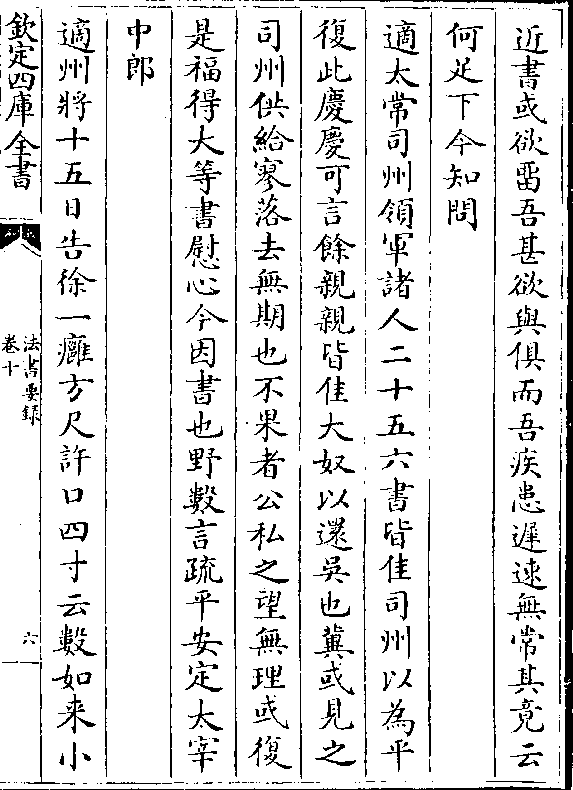 近書或欲留吾甚欲與俱而吾疾患遲速無常其竟云
何足下今知問
適太常司州領軍諸人二十五六書皆佳司州以為平
復此慶慶可言餘親親皆佳大奴以還吳也冀或見之
司州供給寥落去無期也不果者公私之望無理或復
是福得大等書慰心今因書也野數言疏平安定太宰
中郎
適州將十五日告徐一癰方尺許口四寸云數如来小
欽定四庫全書
法書要録
卷十
六